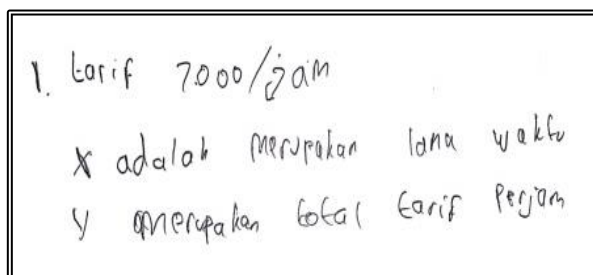 1. tarif 7000/jam
x adalah merupakan lama waktu
y merupakan total tarif perjam